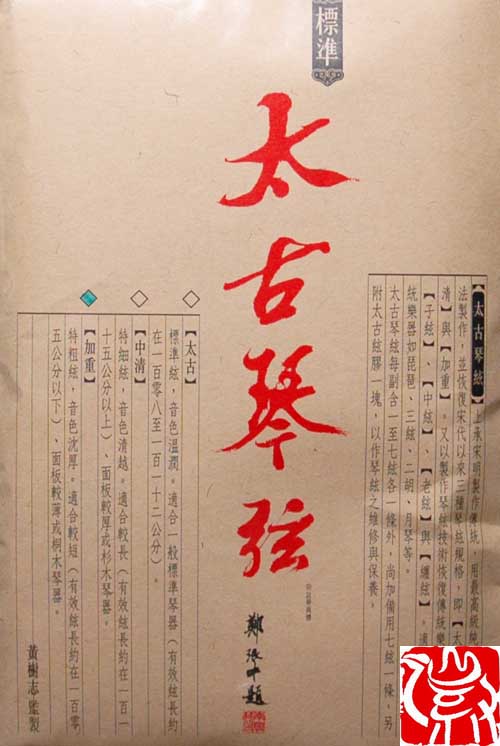 標準
太古琴弦
太古琴絃 上承宋明製作傳統，用最高級純
法製作，並恢復宋代以來三種琴絃規格，即【太
清】與【加重】。又以製作琴絃技術恢復傳統樂
【子絃】、【中絃】、【老絃】與【纏絃】，適
統樂器如琵琶、三絃、二胡、月琴等。
太古琴絃每副含一至七絃各一條外，尚加備用七絃一條，另
附太古絃膠一塊，以作琴絃之維修與保養。
鄭珉中題
【太古】
標準絃，音色溫潤。適合一般標準琴器（有效絃長約
在一百零八至一百一十二公分）。
【中清】
特細絃，音色清越。適合較長（有效絃長約在一百一
十五公分以上）、面板較厚或杉木琴器。
【加重】
特粗絃，音色沈厚。適合較短（有效絃長約在一百零
五公分以下）、面板較薄或桐木琴器。
黃樹志監製